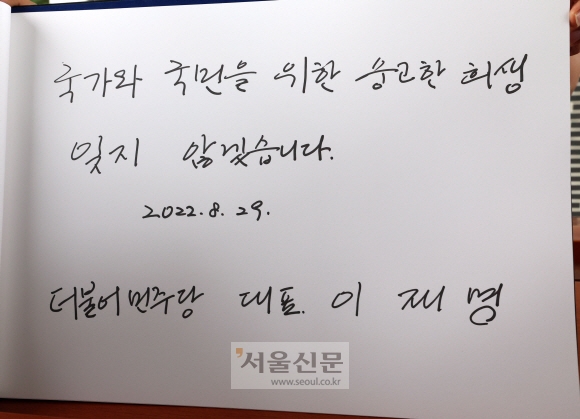 국가와 국민을 위한 숭고한 희생
잊지 않겠습니다.
2022. 8. 29.
더불어민주당 대표. 이 재 명
서울신문
www.seoul.co.kr